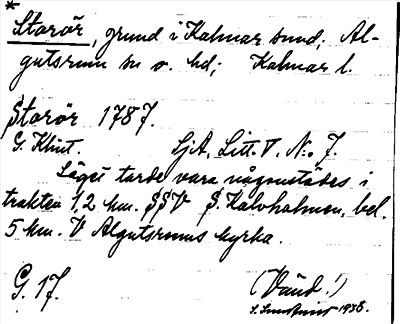 *
Storör, grund i Kalmar sund; Al-
gutsrum sn o. hd; Kalmar l.
Storör 1787.
G. Klint. SjA, Litt. V. No. 7.
Läget torde vara någonstädes i
trakten 1,2 km. SSV S. Kalvholmen, bel.
5 km. V Algutsrums kyrka.
G. 17. (Vänd!)
1938.